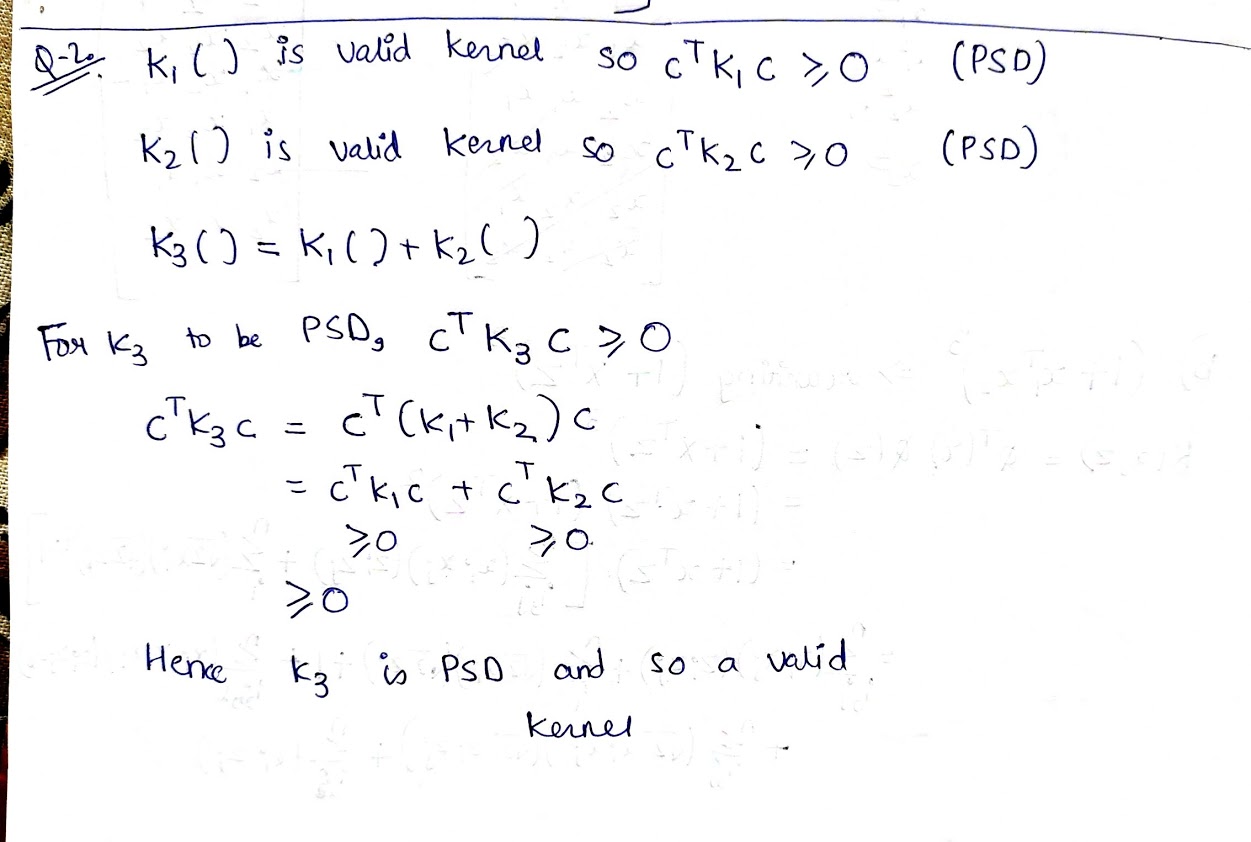 Q-2. K₁( ) is valid kernel so cᵀK₁c ⩾ 0 (PSD)
K₂( ) is valid kernel so cᵀK₂c ⩾ 0 (PSD)
K₃( ) = K₁( ) + K₂( )
For K₃ to be PSD, cᵀK₃c ⩾ 0
cᵀK₃c = cᵀ(K₁ + K₂)c
= cᵀK₁c + cᵀK₂c
⩾0 ⩾0
⩾0
Hence K₃ is PSD and so a valid
kernel